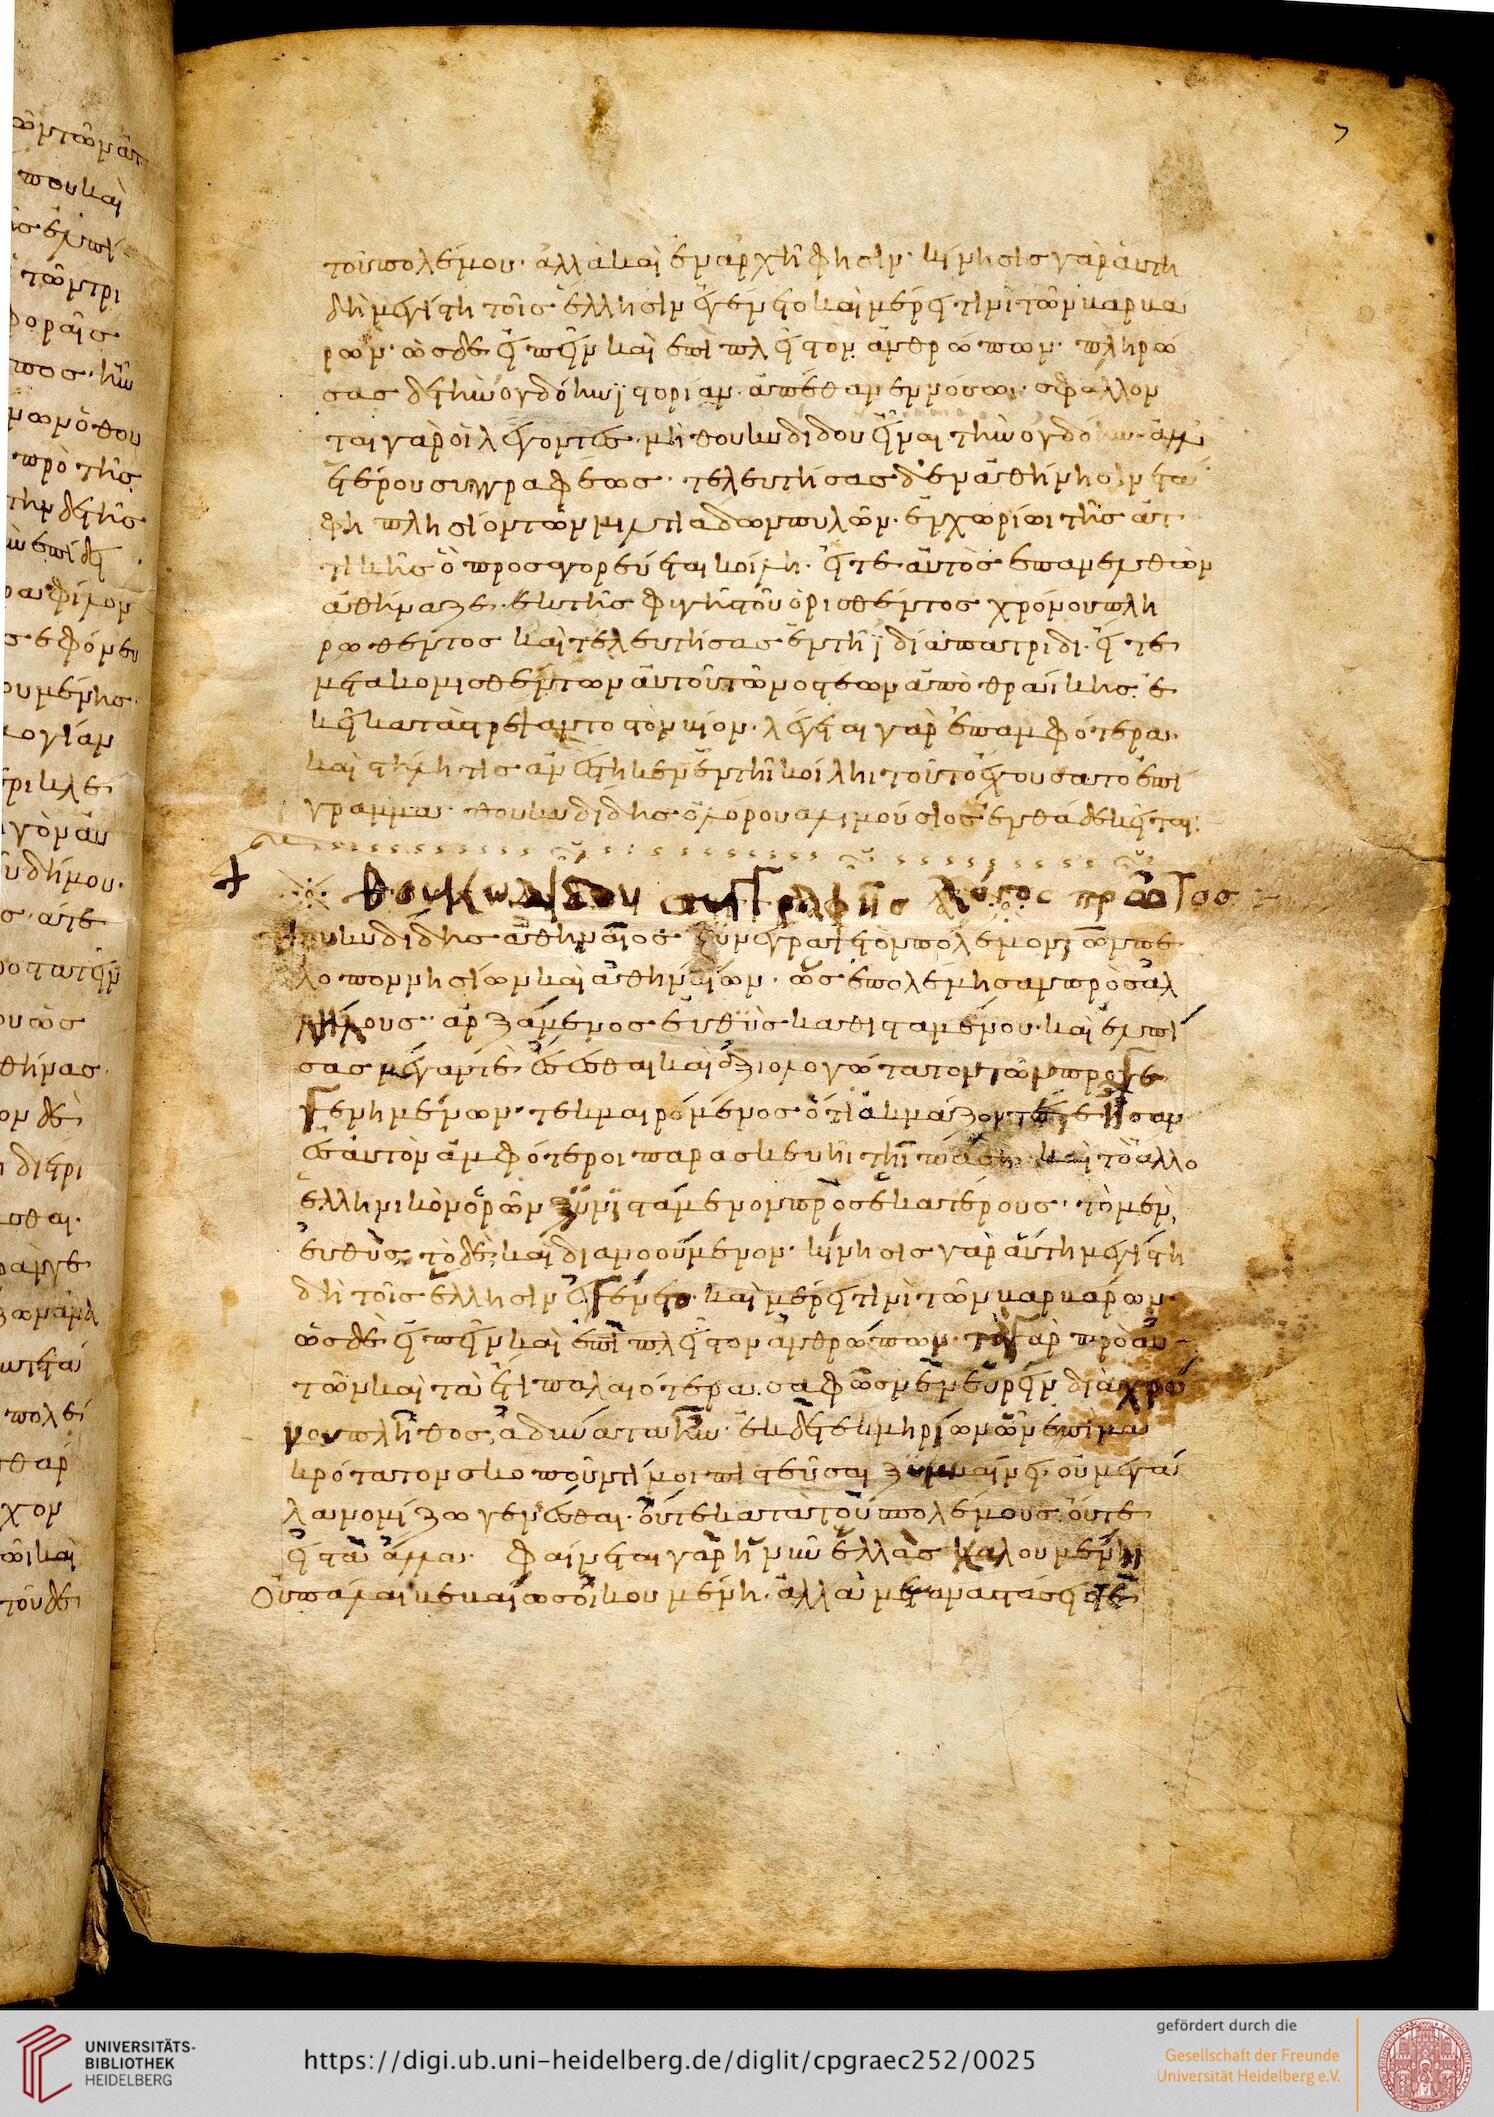 7
τοῦ πολέμου· ἀλλὰ καὶ ἐν ἀρχῆι φησὶν· κίνησις γὰρ αὕτη
δὴ μεγίστη τοῖς ἕλλησιν ἐγένετο καὶ μέρει τινὶ τῶν βαρβά
ρων· ὡς δὲ εἰπεῖν καὶ ἐπὶ πλεῖστον ἀνθρώπων· πληρώ
σας δὲ τὴν ὀγδόην ἱστορίαν· ἀπέθανεν νόσωι· σφάλλον
ται γὰρ οἱ λέγοντες· μὴ θουκυδίδου εἶναι τὴν ὀγδόην· ἀλλ'
ἑτέρου συγγραφέως· τελευτήσας δ' ἐν ἀθήνησιν ἐτά
φη πλησίον τῶν μελιτιάδων πυλῶν· ἐν χωρίωι τῆς ἀτ
τικῆς ὃ προσαγορεύεται κοίλη· εἴτε αὐτὸς ἐπανελθὼν
ἀθήναζε· ἐκ τῆς φυγῆς τοῦ ὁρισθέντος χρόνου πλη
ρωθέντος καὶ τελευτήσας ἐν τῆι ἰδίαι πατρίδι· εἴτε
μετακομισθέντων αὐτοῦ τῶν ὀστέων ἀπὸ θράικης· ἐ
κεῖ καταστρέψαντο τὸν βίον· λέγεται γὰρ ἐπ' ἀμφότερα·
καὶ στήλη τις ἀνέστηκεν ἐν τῆι κοίληι τοῦτο ἔχουσα τὸ ἐπί
γραμμα· θουκυδίδης ὀλόρου ἁλιμούσιος ἐνθάδε κεῖται:
θουκυδίδου συγγραφῆς λόγος πρῶτος
θουκυδίδης ἀθηναῖος ξυνέγραψε τὸν πόλεμον τῶν πε
λοποννησίων καὶ ἀθηναίων· ὡς ἐπολέμησαν πρὸς ἀλ
λήλους· ἀρξάμενος εὐθὺς καθισταμένου· καὶ ἐλπί
σας μέγαν τὲ ἔσεσθαι καὶ ἀξιολογώτατον τῶν προγε
γενημένων· τεκμαιρόμενος ὅτι ἀκμάζοντές τε ἦσαν
ἐς αὐτὸν ἀμφότεροι παρασκευῆι τῆι πάσηι· καὶ τὸ ἄλλο
ἑλληνικὸν ὁρῶν ξυνιστάμενον πρὸς ἑκατέρους· τὸ μὲν
εὐθὺς, τὸ δὲ καὶ διανοούμενον· κίνησις γὰρ αὕτη μεγίστη
δὴ τοῖς ἕλλησιν ἐγένετο· καὶ μέρει τινὶ τῶν βαρβάρων·
ὡς δὲ εἰπεῖν καὶ ἐπὶ πλεῖστον ἀνθρώπων· τὰ γὰρ πρὸ αὐ
τῶν καὶ τὰ ἔτι παλαιότερα· σαφῶς μὲν εὑρεῖν διὰ χρό
νου πλῆθος, ἀδύνατα ἦν· ἐκ δὲ τεκμηρίων ὧν ἐπὶ μα
κρότατον σκοποῦντί μοι πιστεῦσαι ξυμβαίνει· οὐ μεγά
λα νομίζω γενέσθαι· οὔτε κατὰ τοὺς πολέμους· οὔτε
ἐς τὰ ἄλλα· φαίνεται γὰρ ἡ νῦν ἑλλὰς καλουμένη
Οὐ πάλαι βεβαίως οἰκουμένη· ἀλλὰ μεταναστάσεις τὲ
UNIVERSITÄTS-
BIBLIOTHEK
HEIDELBERG
https://digi.ub.uni-heidelberg.de/diglit/cpgraec252/0025
gefördert durch die
Gesellschaft der Freunde
Universität Heidelberg e.V.